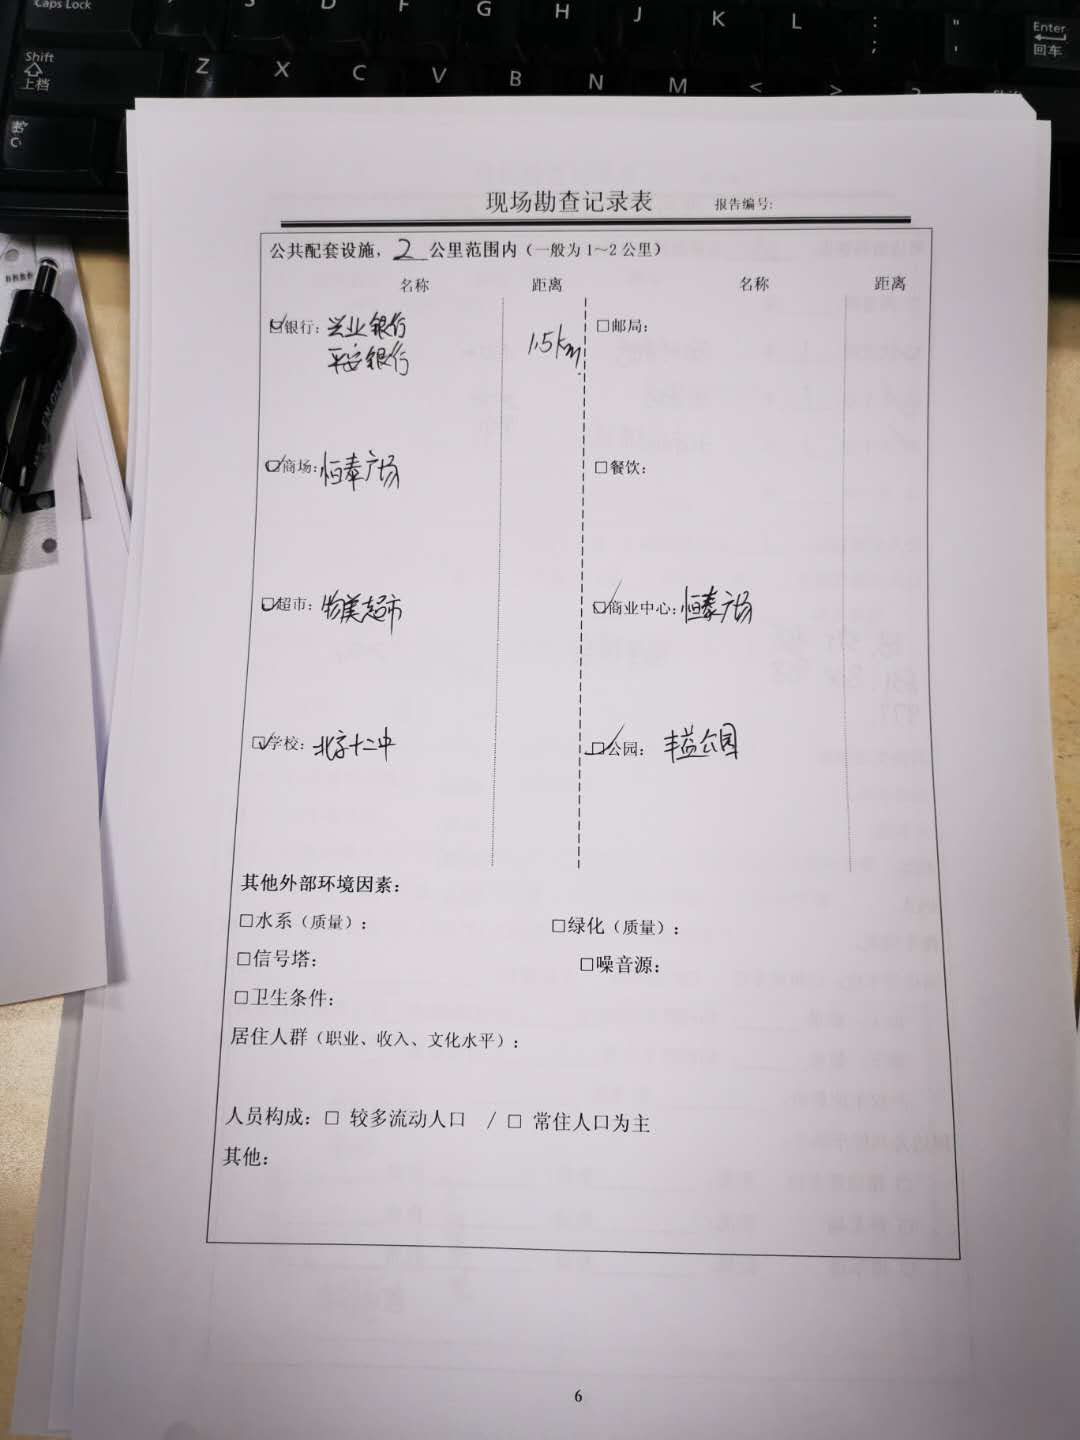 Caps Lock
D F G H J K L : ; " '
Enter 回车
Shift 上档
Z X C V B N M < > ?
现场勘查记录表 报告编号:
公共配套设施，2 公里范围内（一般为 1～2 公里）
名称 距离 名称 距离
☑银行：兴业银行 1.5km □邮局：
平安银行
☑商场：恒泰广场 □餐饮：
☑超市：物美超市 ☑商业中心：恒泰广场
☑学校：北京十二中 ☑公园：丰益公园
其他外部环境因素：
□水系（质量）： □绿化（质量）：
□信号塔： □噪音源：
□卫生条件：
居住人群（职业、收入、文化水平）：
人员构成：□ 较多流动人口 / □ 常住人口为主
其他：
6